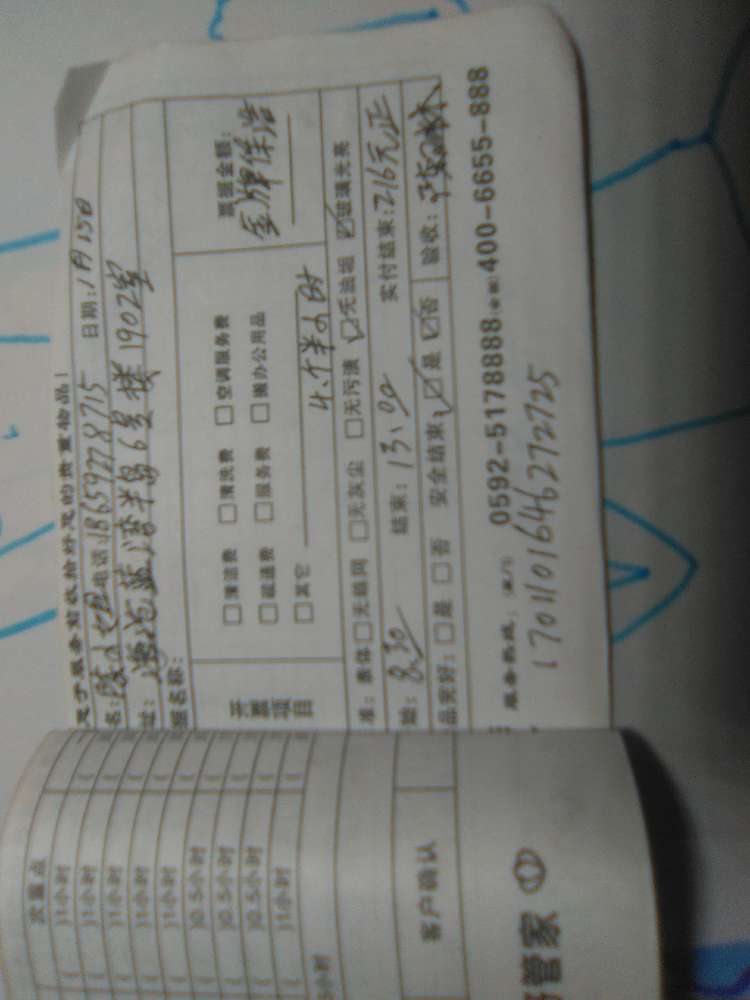 于服务前收拾好您的贵重物品！
名：陈小姐 电话：18659278715 日期：1月15日
址：海沧蓝湾半岛6号楼1902室
名称：
开票项目
□清洁费 □清洗费 □空调服务费
□疏通费 □服务费 □搬办公用品
□其它 4.5个半小时
票据金额：
金牌保洁
准：整体□无蛛网 □无灰尘 □无污渍 ☑无油垢 ☑玻璃光亮
始：8.30 结束：13.00 实付结束：216元正
品完好：□是 □否 安全结束 ☑是 ☑否 验收：
服务热线：（厦门）0592-5178888（全国）400-6655-888
1701101646272725
次重点
）1小时
）1小时
）1小时
）1小时
）1小时
）0.5小时
）0.5小时
）0.5小时
）1小时
小时
客户确认
管家